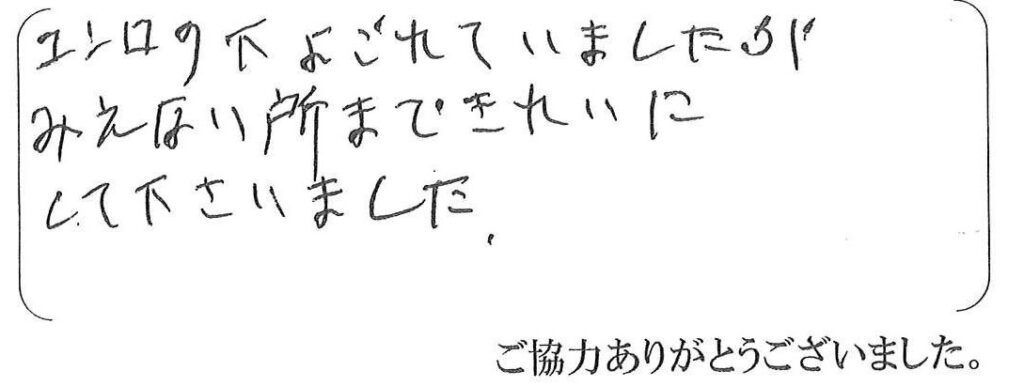 コンロの下よごれていましたが
みえない所まできれいに
して下さいました.
ご協力ありがとうございました。